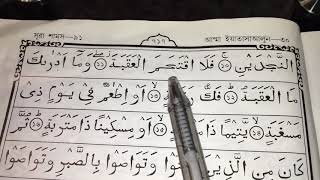 সুরা শামস-৯১ ৭১৭ আম্মা ইয়াতাসাআলূন-৩০
النَّجْدَيْنِ ۝ فَلَا اقْتَحَمَ الْعَقَبَةَ ۝ وَمَا أَدْرٰىكَ
مَا الْعَقَبَةُ ۝ فَكُّ رَقَبَةٍ ۝ أَوْ إِطْعٰمٌ فِي يَوْمٍ ذِي
مَسْغَبَةٍ ۝ يَتِيمًا ذَا مَقْرَبَةٍ ۝ أَوْ مِسْكِينًا ذَا مَتْرَبَةٍ ۝ ثُمَّ
كَانَ مِنَ الَّذِينَ وَتَوَاصَوْا بِالصَّبْرِ وَتَوَاصَوْا